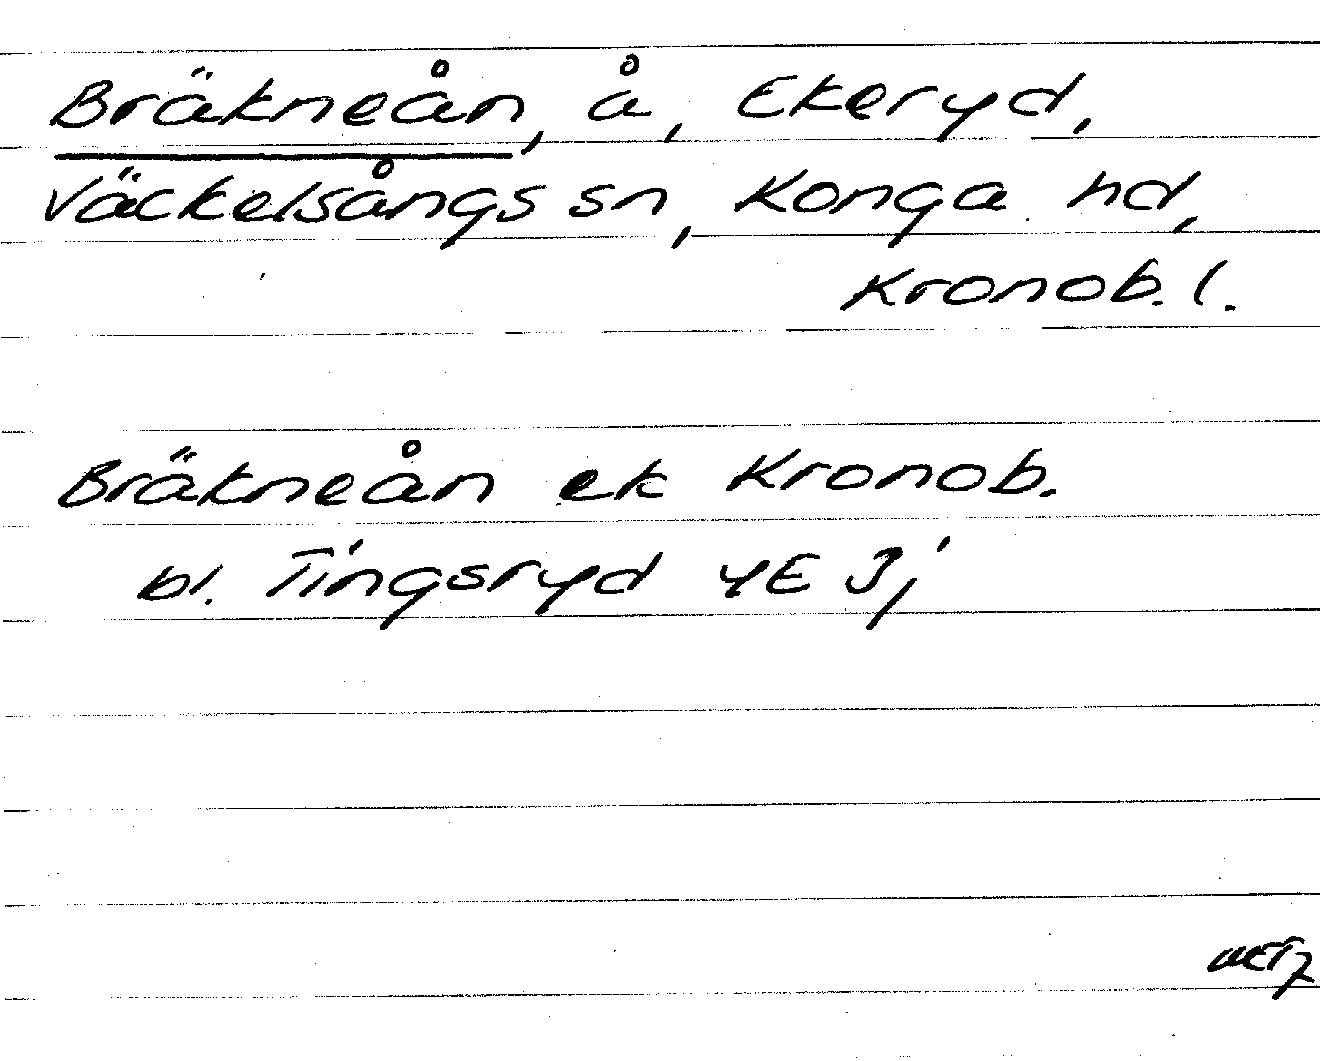 Bräkneån, å, Ekeryd,
Väckelsångs sn, Konga hd,
Kronob. l.
Bräkneån ek Kronob.
bl. Tingsryd 4E Jj